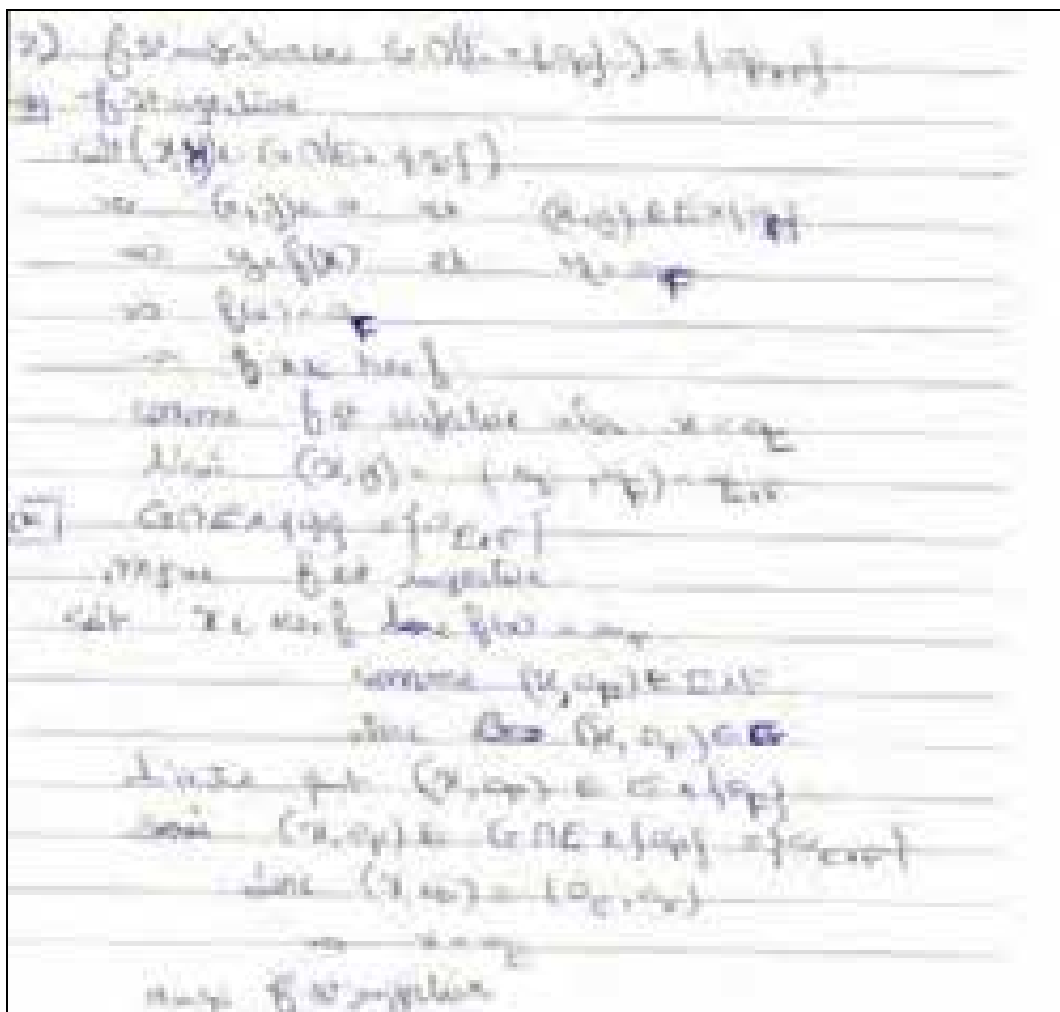 f est injective G ∩ (E × {0_F}) = {0_{E×F}}
f est injective
soit (x,y) ∈ G ∩ (E × {0_F})
(x,y) ∈ G et (x,y) ∈ E × {0_F}
y = f(x) et y = 0_F
f(x) = 0_F
x ∈ ker f
comme f est injective alors x = 0_E
d'où (x,y) = (0_E, 0_F) = 0_{E×F}
G ∩ E × {0_F} = {0_{E×F}}
f est injective
soit x ∈ ker f donc f(x) = 0_F
comme (x, 0_F) ∈ E×F
donc (x, 0_F) ∈ G
d'autre part (x, 0_F) ∈ E × {0_F}
(x, 0_F) ∈ G ∩ E × {0_F} = {0_{E×F}}
donc (x, 0_F) = (0_E, 0_F)
x = 0_E
f est injective